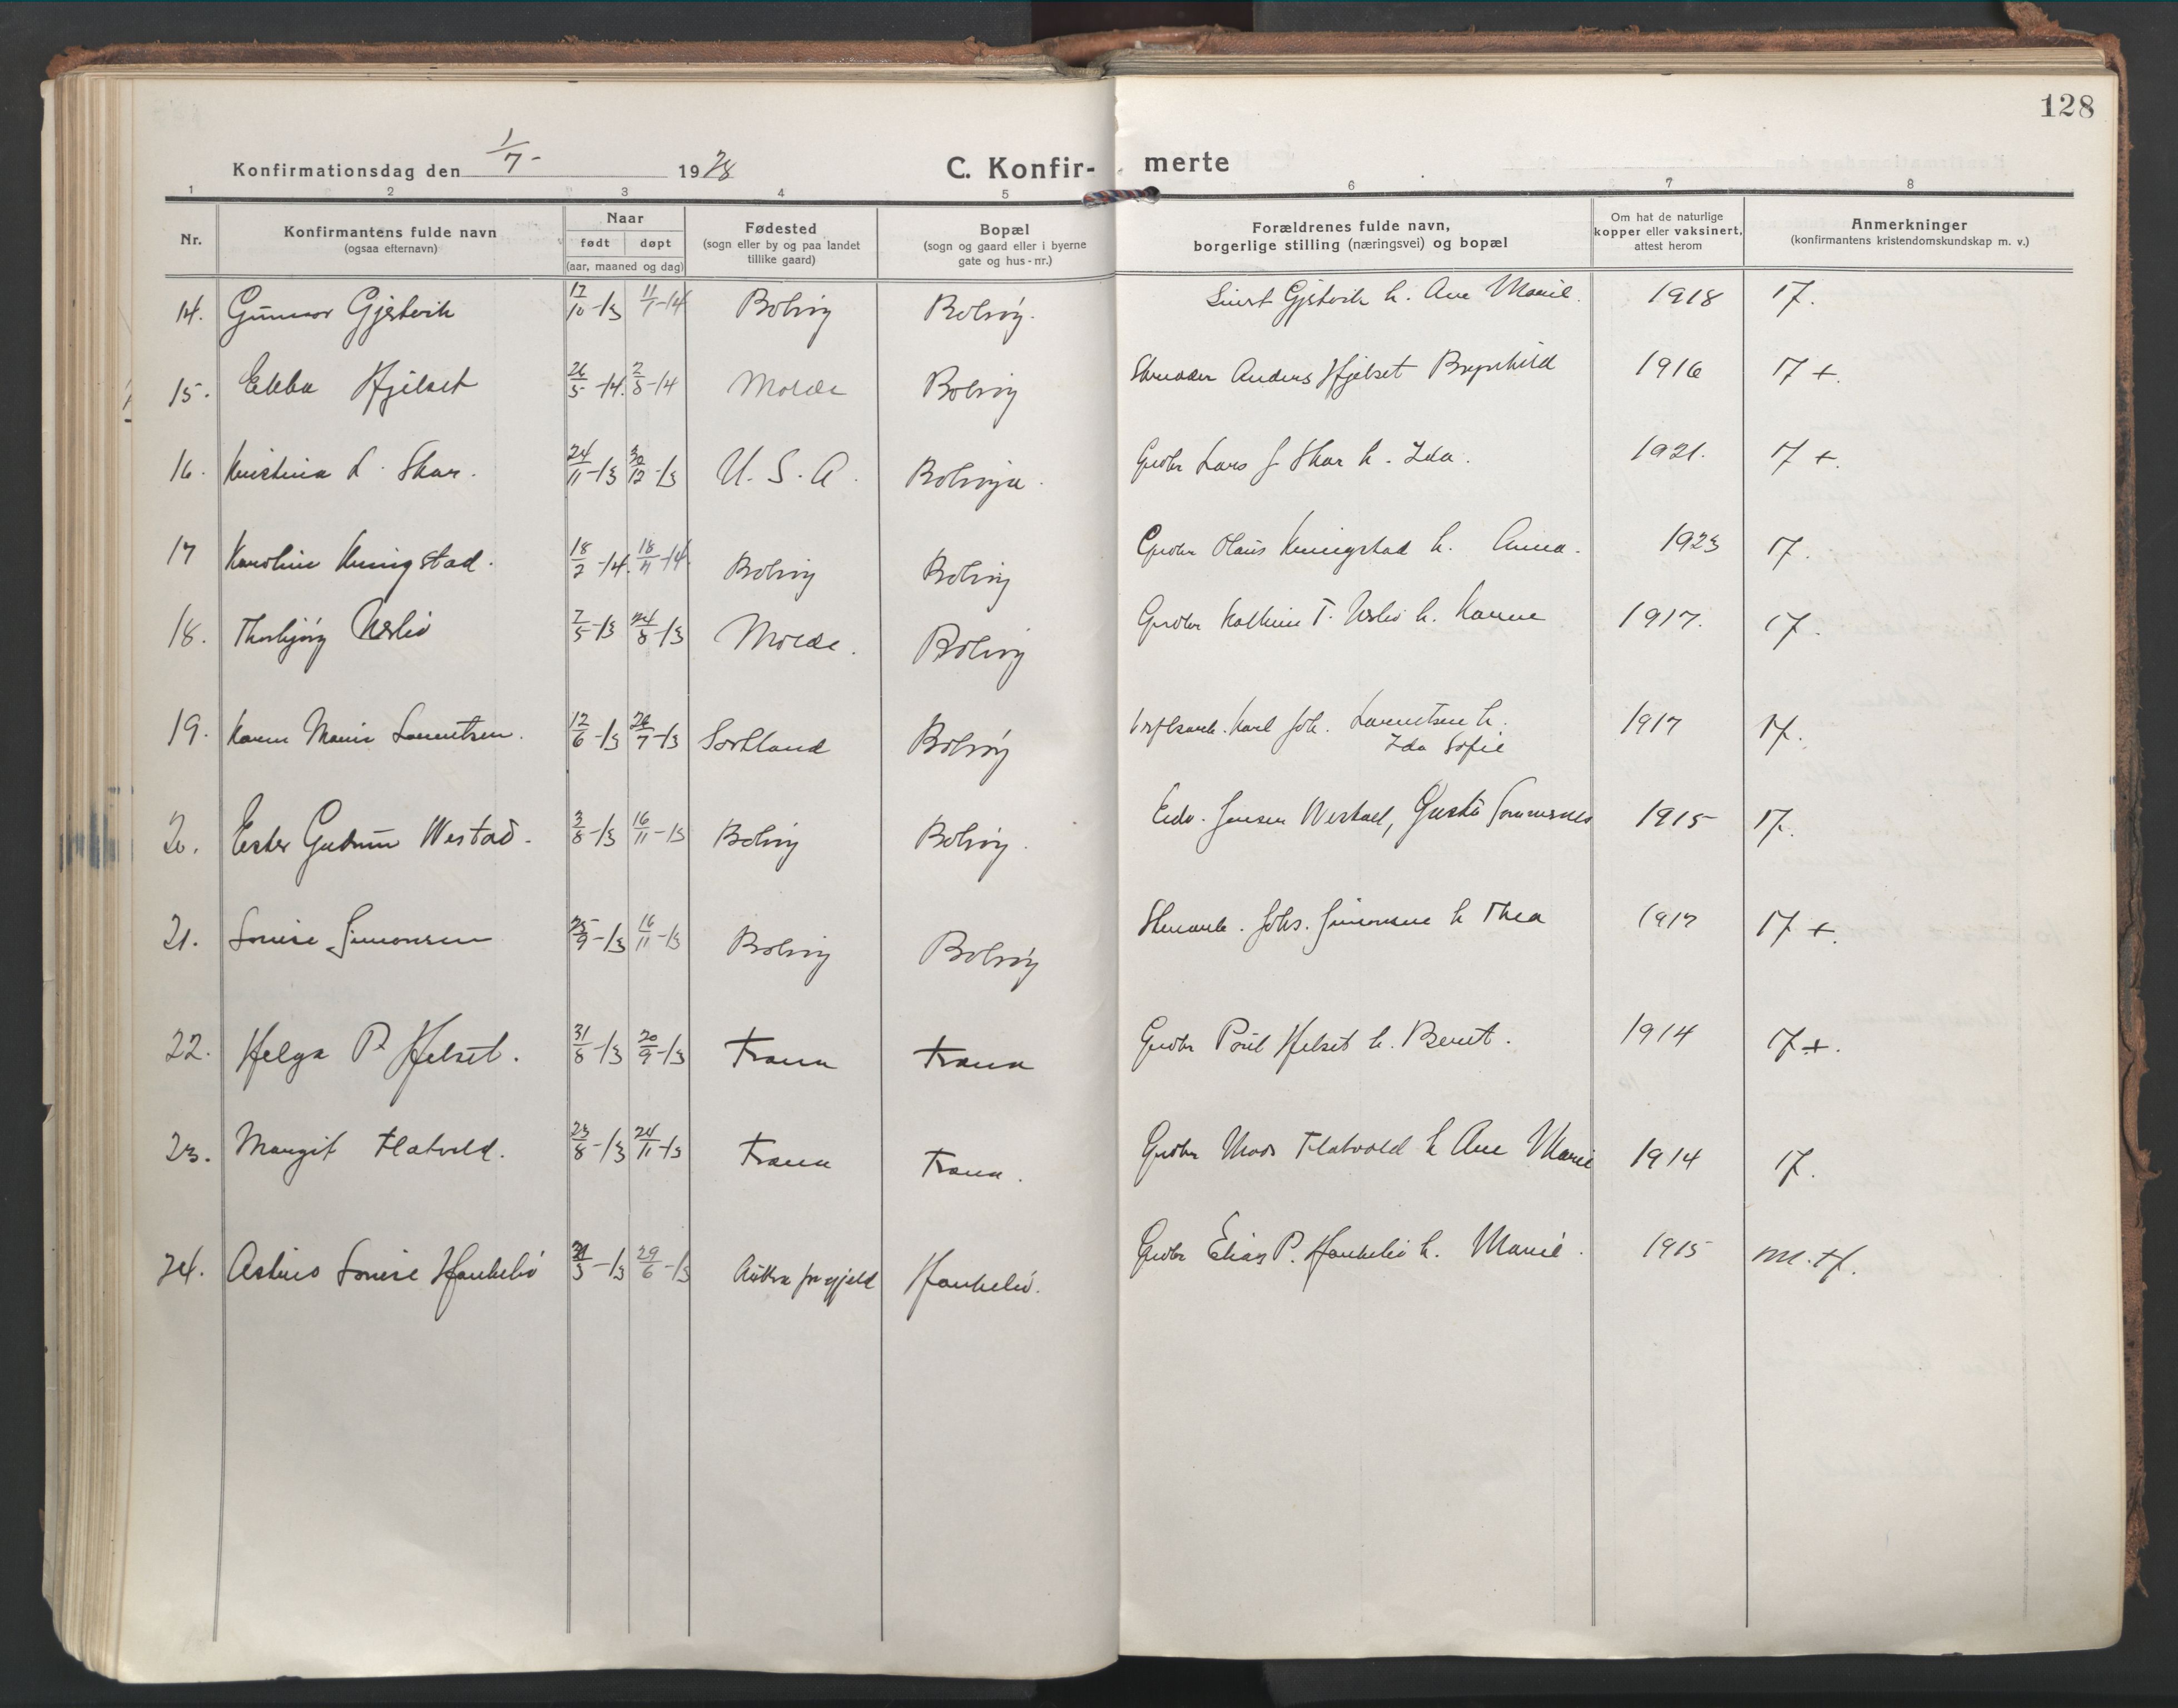 128
Konfirmationsdag den 1/7- 1928 C. Konfir- merte
1 2 3 4 5 6 7 8
Nr. Konfirmantens fulde navn (ogsaa efternavn) Naar født døpt (aar, maaned og dag) Fødested (sogn eller by og paa landet tillike gaard) Bopæl (sogn og gaard eller i byerne gate og hus-nr.) Forældrenes fulde navn, borgerlige stilling (næringsvei) og bopæl Om hat de naturlige kopper eller vaksinert, attest herom Anmerkninger (konfirmantens kristendomskundskap m. v.)
14. Gunnar Gjestvik 17/10-13 11/1-14 Bolsøy Bolsøy. Sivert Gjestvik h. Ane Marie. 1918 17.
15. Ebba Hjelset 26/3-14. 2/5-14 Molde Bolsøy Skrædder Anders Hjelset Brynhild 1916 17 +.
16. Kristina L. Skar. 24/11-13 30/12-13 U. S. A. Bolsøya. Grdbr Lars J. Skar h. Ida. 1921. 17 +.
17 Karoline Kringstad. 18/2-14. 18/4-14. Bolsøy Bolsøy Grdbr Olaus Kringstad h. Anna. 1923 17.
18. Thorbjørg Usliø 7/5-13 24/8-13 Molde. Bolsøy Grdbr T. Usliø h. Karen 1917. 17.
19. Karen Marie Laurentsen. 12/6-13 26/7-13 Sortland Bolsøy Karl Joh. Laurentsen h. 1917 17.
Ida Sofie
20. Ester Gudrun Westad. 3/8-13 16/11-13 Bolsøy Bolsøy. Edv. Jensen Westad, 1915 17.
21. Louise Simonsen 25/9-13 16/11-13 Bolsøy Bolsøy Johs. Simonsen h Thea 1917 17 +.
22. Helga P. Helset. 31/8-13 20/9-13 Fræna Fræna Grdbr Poul Helset h. Beret. 1914 17 +.
23. Margit Flatvold. 23/8-13 24/11-13 Fræna Fræna. Grdbr Mads Flatvold h Ane Marie 1914 17.
24. Louise Haukebø 31/3-13 29/6-13 Aukra prgjeld Haukebø. Grdbr Elias P. Haukebø h. Marie. 1915 M. tf.